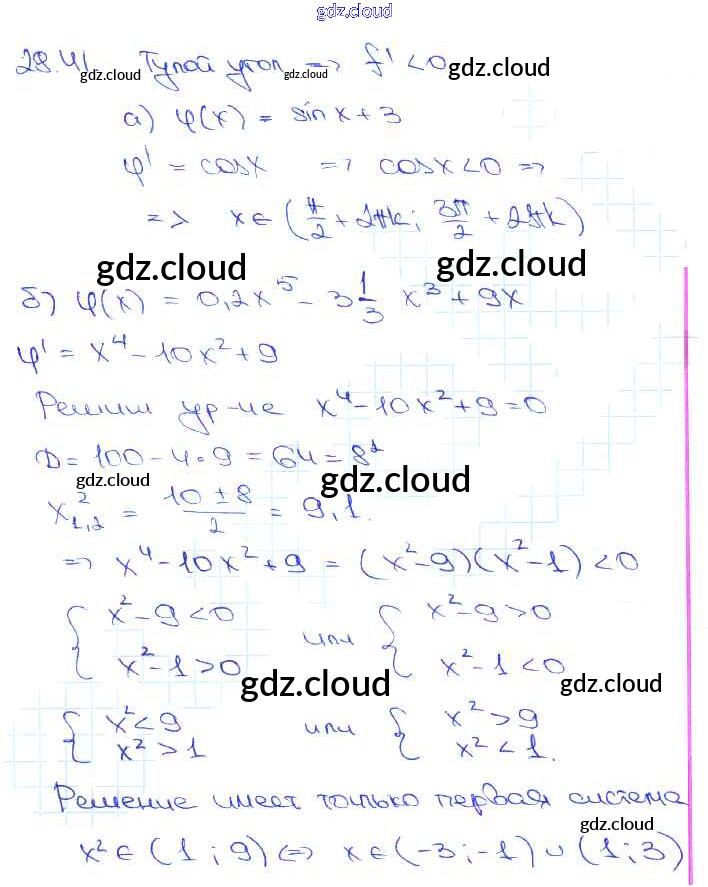 gdz.cloud
28.41 Тупой угол => f' < 0
gdz.cloud gdz.cloud gdz.cloud
а) φ(x) = sin x + 3
φ' = cos x => cos x < 0 =>
=> x ∈ (π/2 + 2πk; 3π/2 + 2πk)
gdz.cloud gdz.cloud
б) φ(x) = 0,2x⁵ - 3 1/3 x³ + 9x
φ' = x⁴ - 10x² + 9
Решим ур-ие x⁴ - 10x² + 9 = 0
D = 100 - 4·9 = 64 = 8²
gdz.cloud gdz.cloud
x²₁,₂ = (10 ± 8)/2 = 9, 1.
=> x⁴ - 10x² + 9 = (x² - 9)(x² - 1) < 0
{ x² - 9 < 0 или { x² - 9 > 0
{ x² - 1 > 0 { x² - 1 < 0
gdz.cloud gdz.cloud
{ x² < 9 или { x² > 9
{ x² > 1 { x² < 1.
Решение имеет только первая система
gdz.cloud
x² ∈ (1; 9) <=> x ∈ (-3; -1) ∪ (1; 3)
gdz.cloud